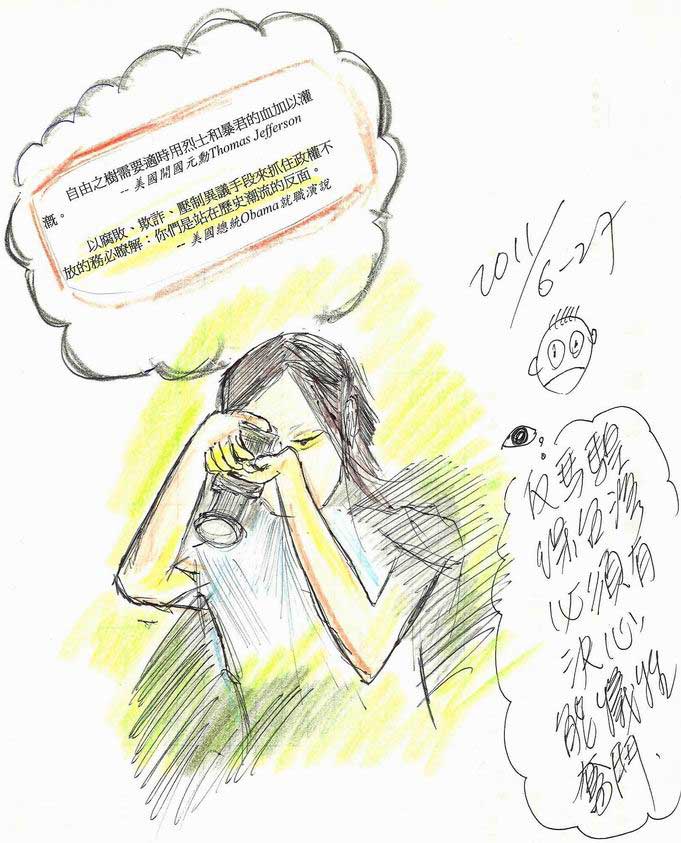 自由之樹需要適時用烈士和暴君的血加以灌
溉。
-- 美國開國元勳Thomas Jefferson
以腐敗、欺詐、壓制異議手段來抓住政權不
放的務必瞭解：你們是站在歷史潮流的反面。
-- 美國總統Obama就職演說
2011/6-27
反馬騜
保台灣
必須有
決心
能犧牲
奮鬥.